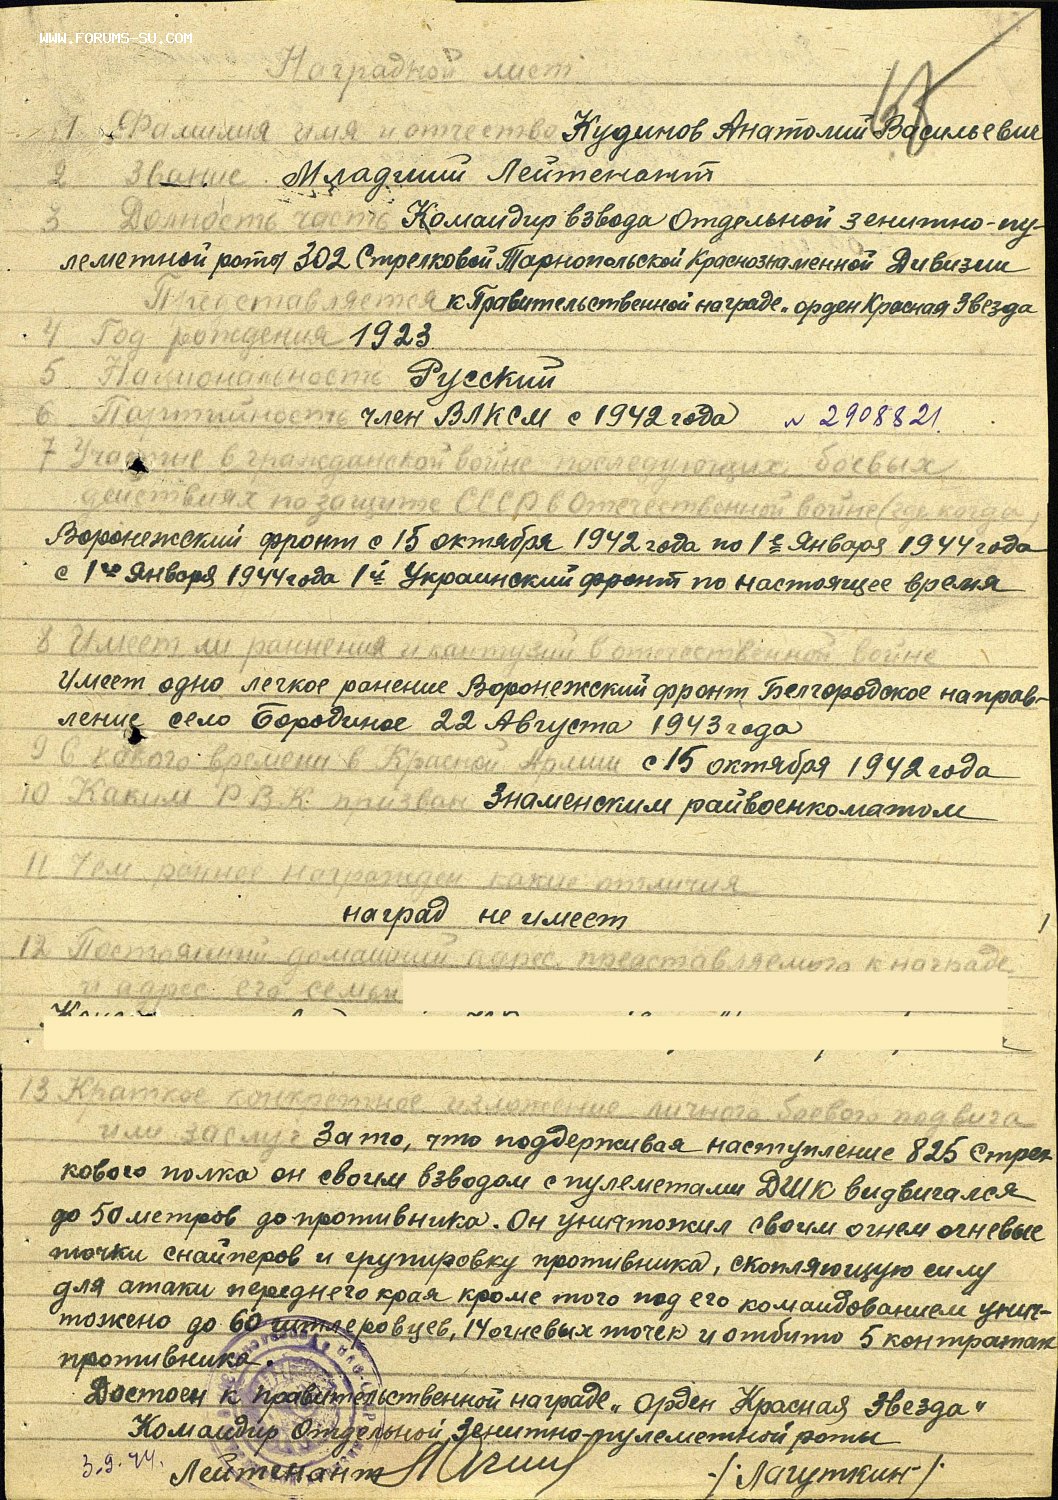 WWW.FORUMS-SU.COM
Наградной лист
1 Фамилия имя и отчество Кудинов Анатолий Васильевич
2 Звание Младший Лейтенант
3 Должность часть Командир взвода Отдельной зенитно-пу-
леметной роты 302 Стрелковой Тарнопольской Краснознаменной Дивизии
Представляется к Правительственной награде „орден Красная Звезда
4 Год рождения 1923
5 Национальность Русский
6 Партийность член ВЛКСМ с 1942 года № 2908821.
7 Участие в гражданской войне последующих боевых
действиях по защите СССР в Отечественной войне (где, когда)
Воронежский фронт с 15 октября 1942 года по 1е Января 1944 года
с 1го Января 1944 года 1й Украинский фронт по настоящее время
8 Имеет ли раннения и контузии в отечественной войне
имеет одно легкое ранение Воронежский фронт Белгородское направ-
ление село Бородиное 22 Августа 1943 года
9 С какого времени в Красной Армии с 15 октября 1942 года
10 Каким Р.В.К. призван Знаменским райвоенкоматом
11 Чем раннее награжден какие отличия
наград не имеет
12 Постоянный домашний адрес представляемого к награде
и адрес его семьи
13 Краткое конкретное изложение личного боевого подвига
или заслуг За то, что поддерживая наступление 825 Стрел
кового полка он своим взводом с пулеметами ДШК видвигался
до 50 метров до противника. Он уничтожил своим огнем огневые
точки снайперов и групировку противника, скопляющую силу
для атаки переднего края кроме того под его командованием унич-
тожено до 60 гитлеровцев, 14 огневых точек и отбито 5 контратак
противника.
Достоен к правительственной награде „орден Красная Звезда"
Командир Отдельной Зенитно-пулеметной роты
3.9.44. Лейтенант -/Лагуткин-/.